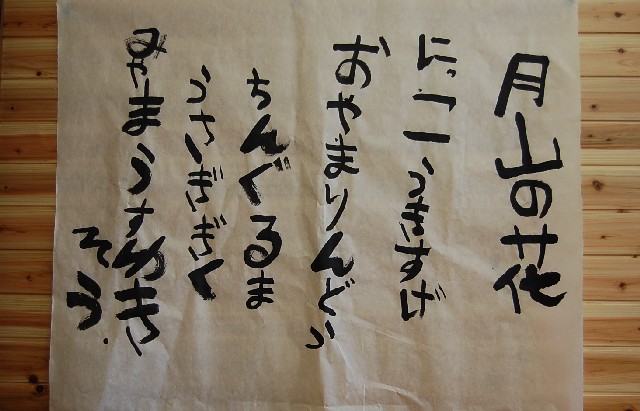 月山の花
にっコーうきすげ
おやまりんどう
ちんぐるま
うさぎぎく
みやまうすゆき
そう.